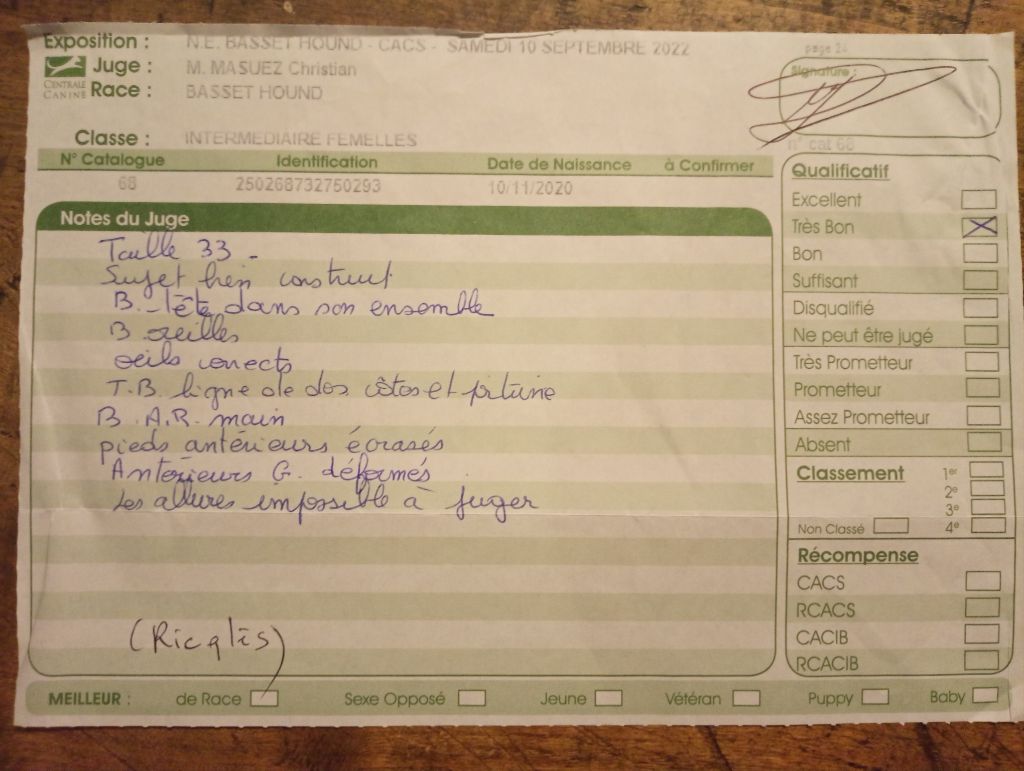 Exposition : N.E. BASSET HOUND - CACS - SAMEDI 10 SEPTEMBRE 2022
page 24
CENTRALE CANINE
Juge : M. MASUEZ Christian
Signature :
Race : BASSET HOUND
Classe : INTERMEDIAIRE FEMELLES
n° cat 68
N° Catalogue Identification Date de Naissance à Confirmer
68 250268732750293 10/11/2020
Notes du Juge
Taille 33 -
Sujet bien construit
B. tête dans son ensemble
B oreilles
oeils corrects
T.B. ligne de dos côtes et pitrine
B. A.R. main
pieds antérieurs écrasés
Antérieurs G. déformés
Les allures impossible à juger
(Ricqlès)
Qualificatif
Excellent
Très Bon
Bon
Suffisant
Disqualifié
Ne peut être jugé
Très Prometteur
Prometteur
Assez Prometteur
Absent
Classement 1er
2e
3e
Non Classé 4e
Récompense
CACS
RCACS
CACIB
RCACIB
MEILLEUR : de Race Sexe Opposé Jeune Vétéran Puppy Baby